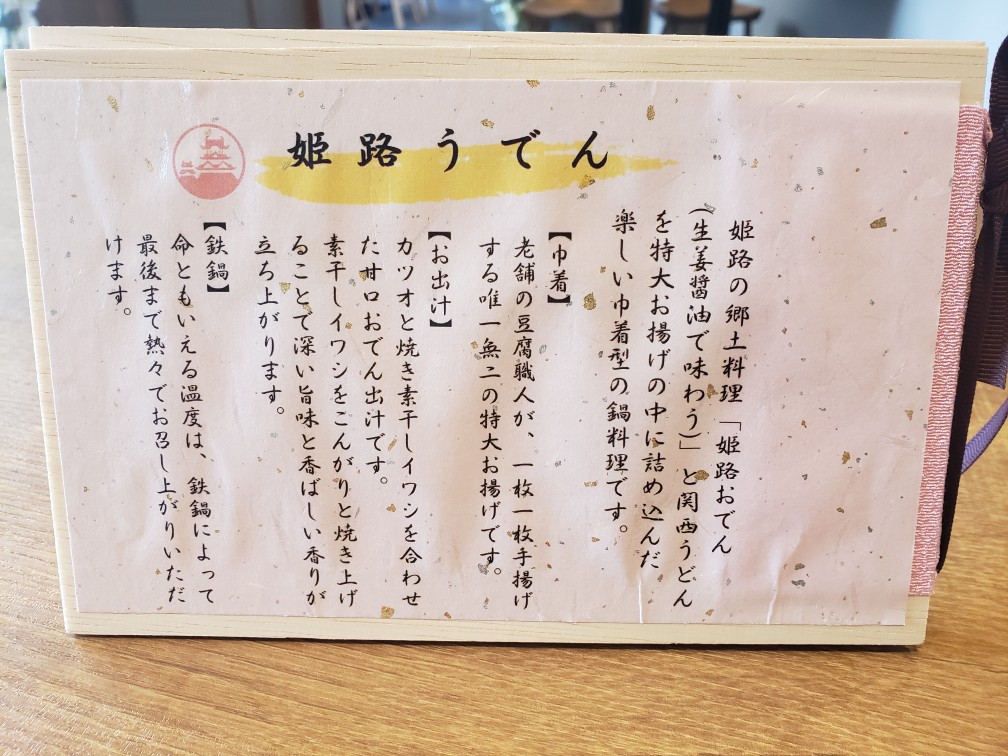 姫路うでん
姫路の郷土料理「姫路おでん
(生姜醤油で味わう)」と関西うどん
を特大お揚げの中に詰め込んだ
楽しい巾着型の鍋料理です。
【巾着】
老舗の豆腐職人が、一枚一枚手揚げ
する唯一無二の特大お揚げです。
【お出汁】
カツオと焼き素干しイワシを合わせ
た甘口おでん出汁です。
素干しイワシをこんがりと焼き上げ
ることで深い旨味と香ばしい香りが
立ち上がります。
【鉄鍋】
命ともいえる温度は、鉄鍋によって
最後まで熱々でお召し上がりいただ
けます。